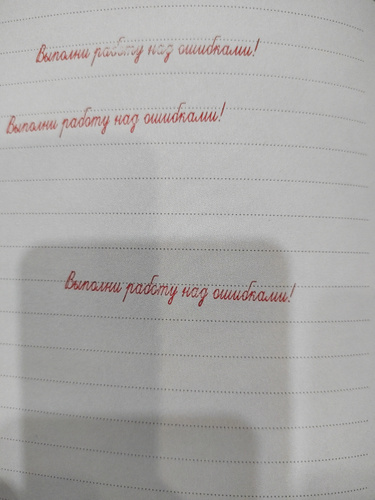 Выполни работу над ошибками!
Выполни работу над ошибками!
Выполни работу над ошибками!